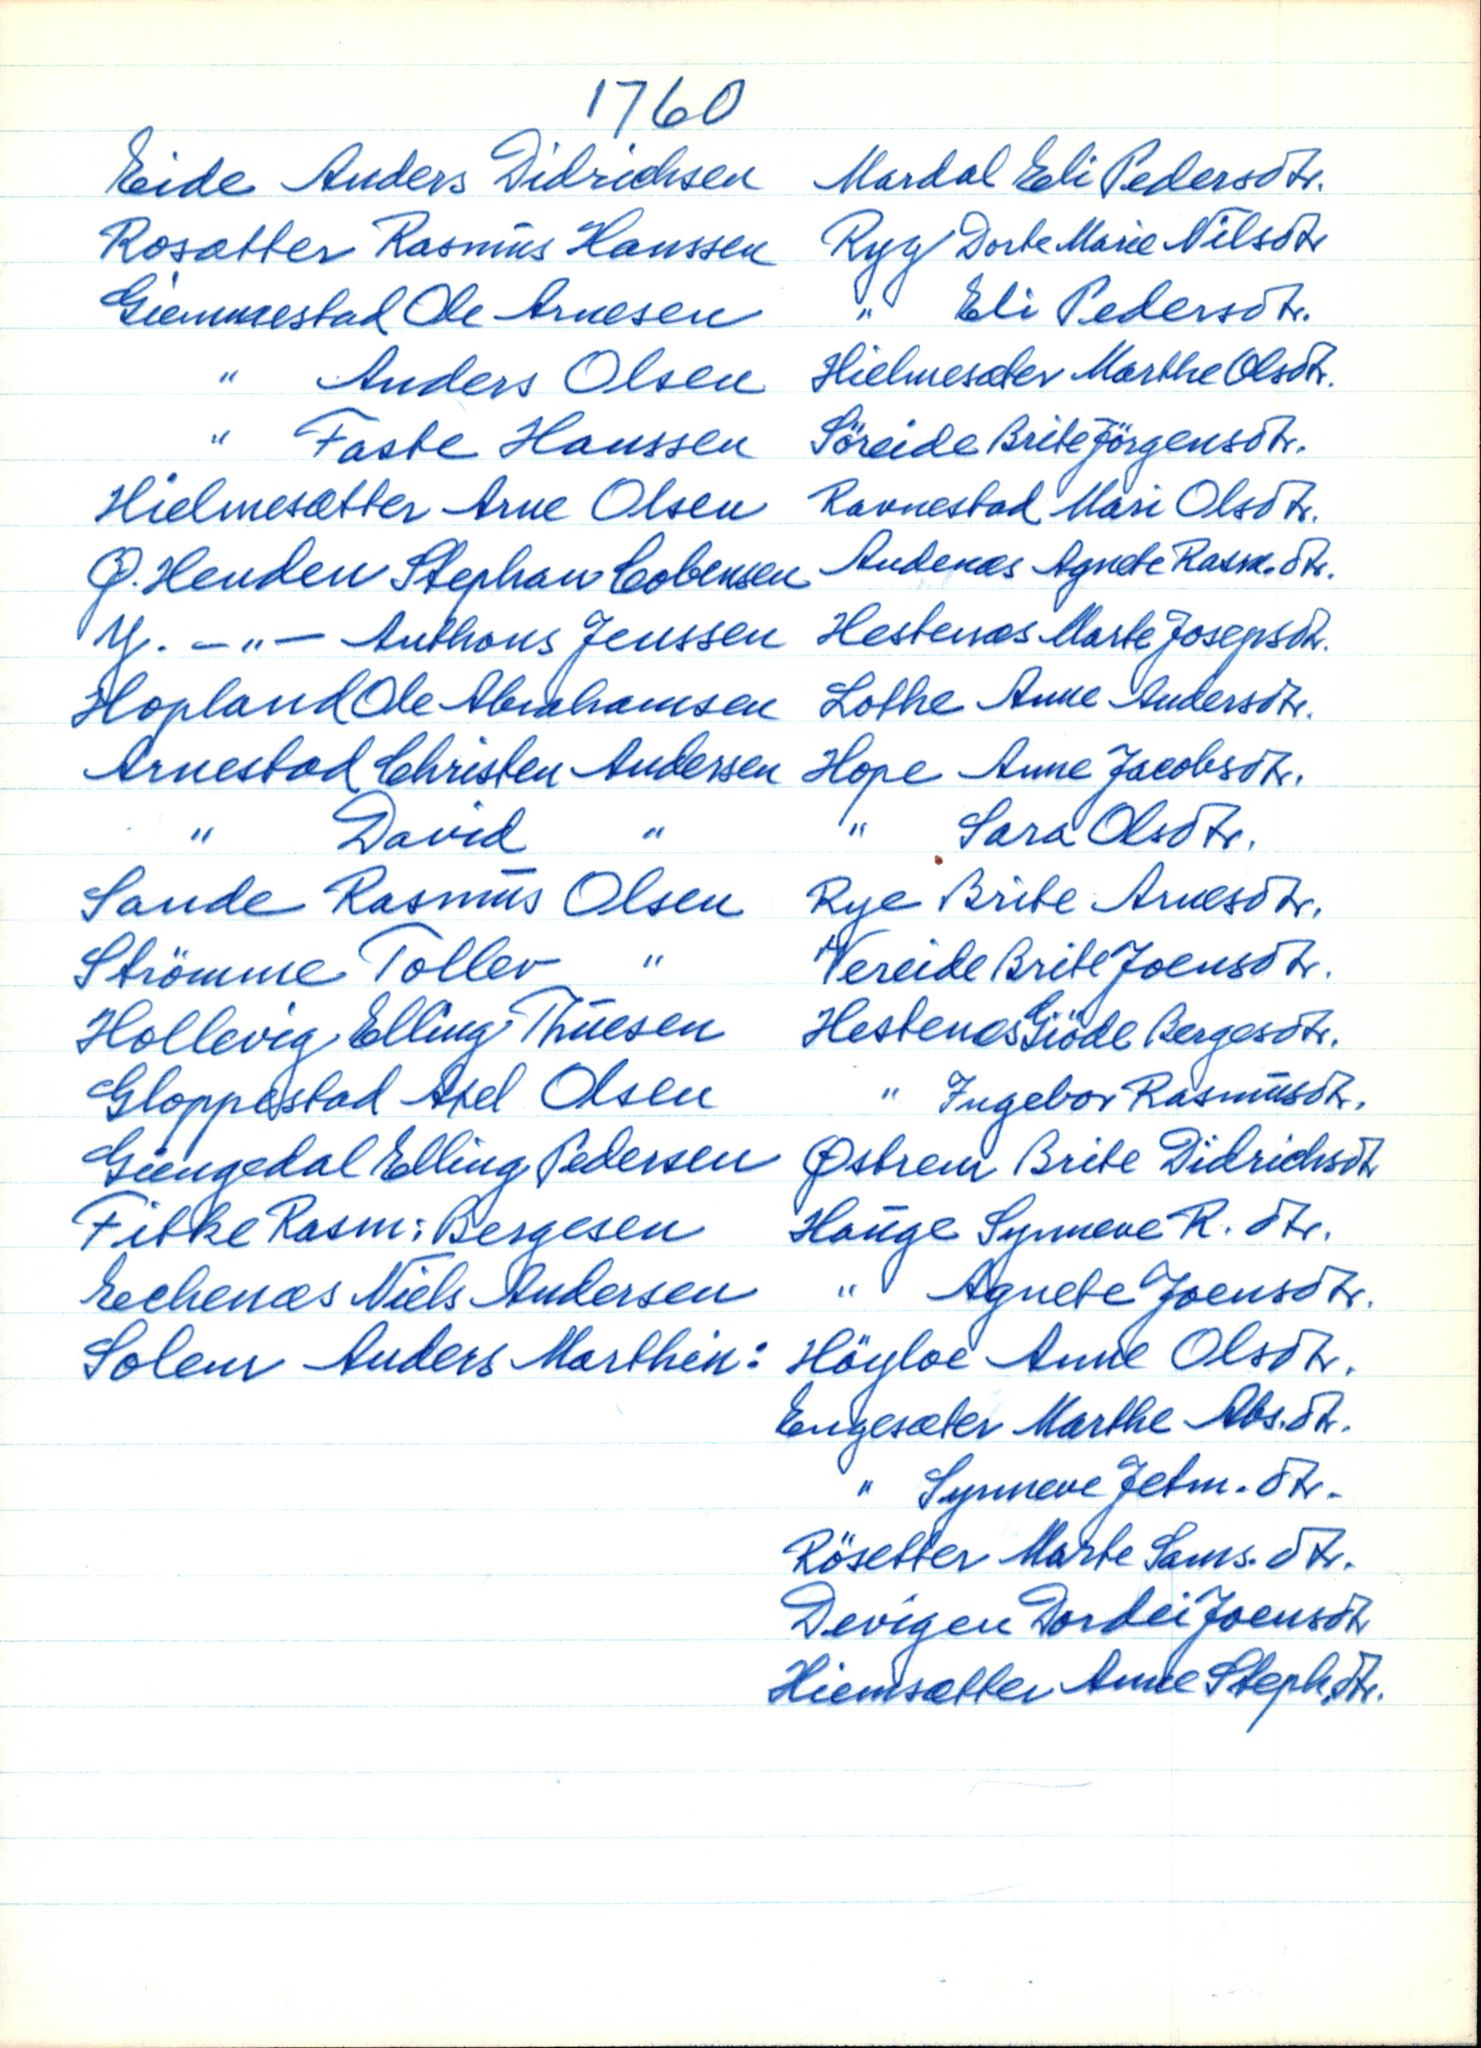 1760
Eide Anders Didrichsen
Rosætter Rasmus Hanssen
Giemmestad Ole Arnesen
" Anders Olsen
" Faste Hanssen
Hielmesætter Arne Olsen
Ø. Henden Stephan Cobensen
Y. -"- Anthons Jenssen
Hopland Ole Abrahamsen
Arnestad Christen Andersen
" David "
Sande Rasmus Olsen
Strömme Tollev "
Hollevig Elling Thuesen
Gloppestad Axel Olsen
Giengedal Elling Pedersen
Fitke Rasm: Bergesen
Eechenæs Niels Andersen
Solem Anders Marthin:
Mardal Eli Pedersdtr.
Ryg Dorte Marie Nilsdtr
" Eli Pedersdtr.
Hielmesæter Marthe Olsdtr.
Söreide Brite Jörgensdtr.
Ravnestad Mari Olsdtr.
Andenæs Agnete Rasm.dtr.
Hestenæs Marte Josepsdtr.
Lothe Anne Andersdtr.
Hope Anne Jacobsdtr.
" Sara Olsdtr.
Rye Brite Arnesdtr.
Vereide Brite Joensdtr.
Hestenæs Giöde Bergesdtr.
" Ingebor Rasmusdtr.
Østrem Brite Didrichsdtr
Hauge Synneve R. dtr.
" Agnete Joensdtr.
Höyloe Anne Olsdtr.
Engesæter Marthe Abs.dtr.
" Synneve Jetm. dtr.
Rösetter Marte Sams. dtr.
Devigen Dordei Joensdtr
Hiemsætter Anne Steph.dtr.